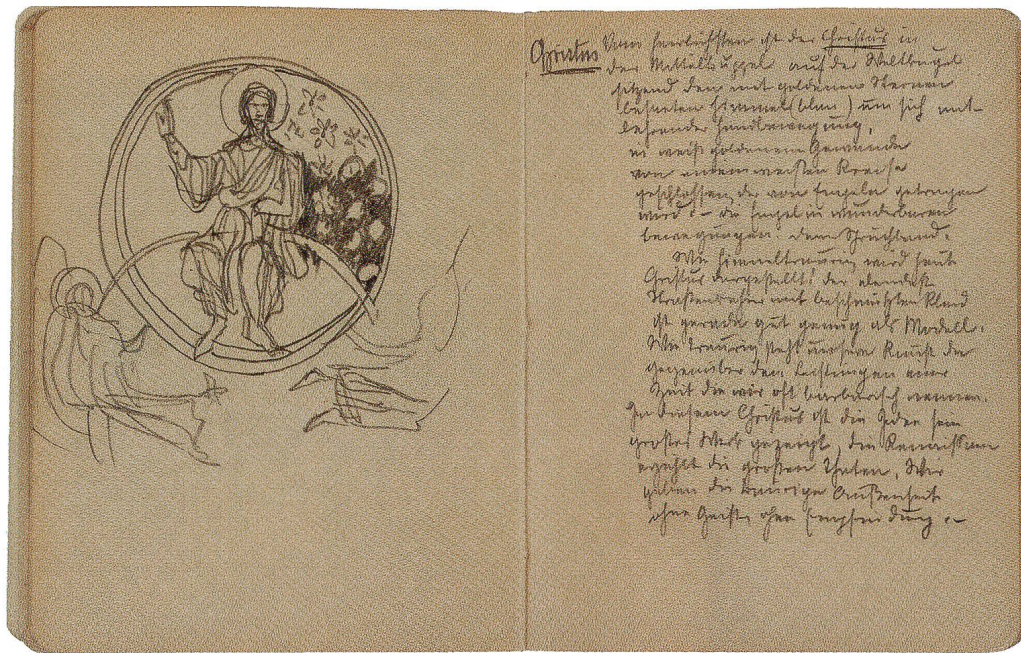 Christus
Am herrlichsten ist der Christus in
der Mittelkuppel auf der Weltkugel
sitzend den mit goldenen Sternen
besäeten Himmel (blau) um sich mit
lehrender Handbewegung,
in weiß goldenem Gewande
von einem weißen Kreise
geschlossen, der von Engeln getragen
wird – die Engel in wunderbaren
Bewegungen. dem Spruchband.
Wie himmeltraurig wird heute
Christus dargestellt! der elendeste
mit beschmutztem Kleid
ist gerade gut genug als Modell.
Wie traurig steht unsere Kunst da
gegenüber den Leistungen einer
Zeit die wir oft barbarisch nennen.
In diesem Christus ist die Idee sein
großes Werk gezeigt, die Renaissance
erzählt die großen Thaten, Wir
geben die traurige Außenseite
ohne Geist, ohne Empfindung –